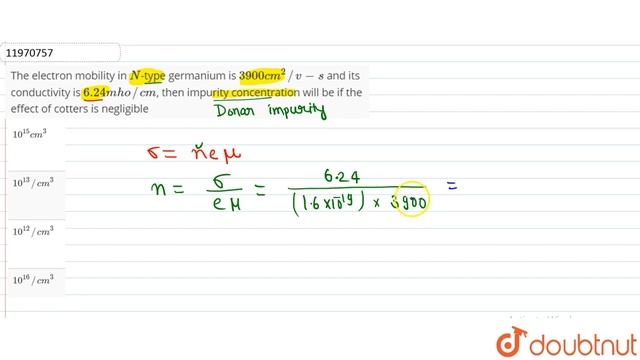 11970757
The electron mobility in N-type germanium is 3900cm²/v − s and its
conductivity is 6.24mho/cm, then impurity concentration will be if the
effect of cotters is negligible
Donar impurity
10¹⁵cm³
σ = n e μ
10¹³/cm³
n = σ / e μ = 6.24 / (1.6×10¹⁹) × 3900 =
10¹²/cm³
10¹⁶/cm³
doubtnut